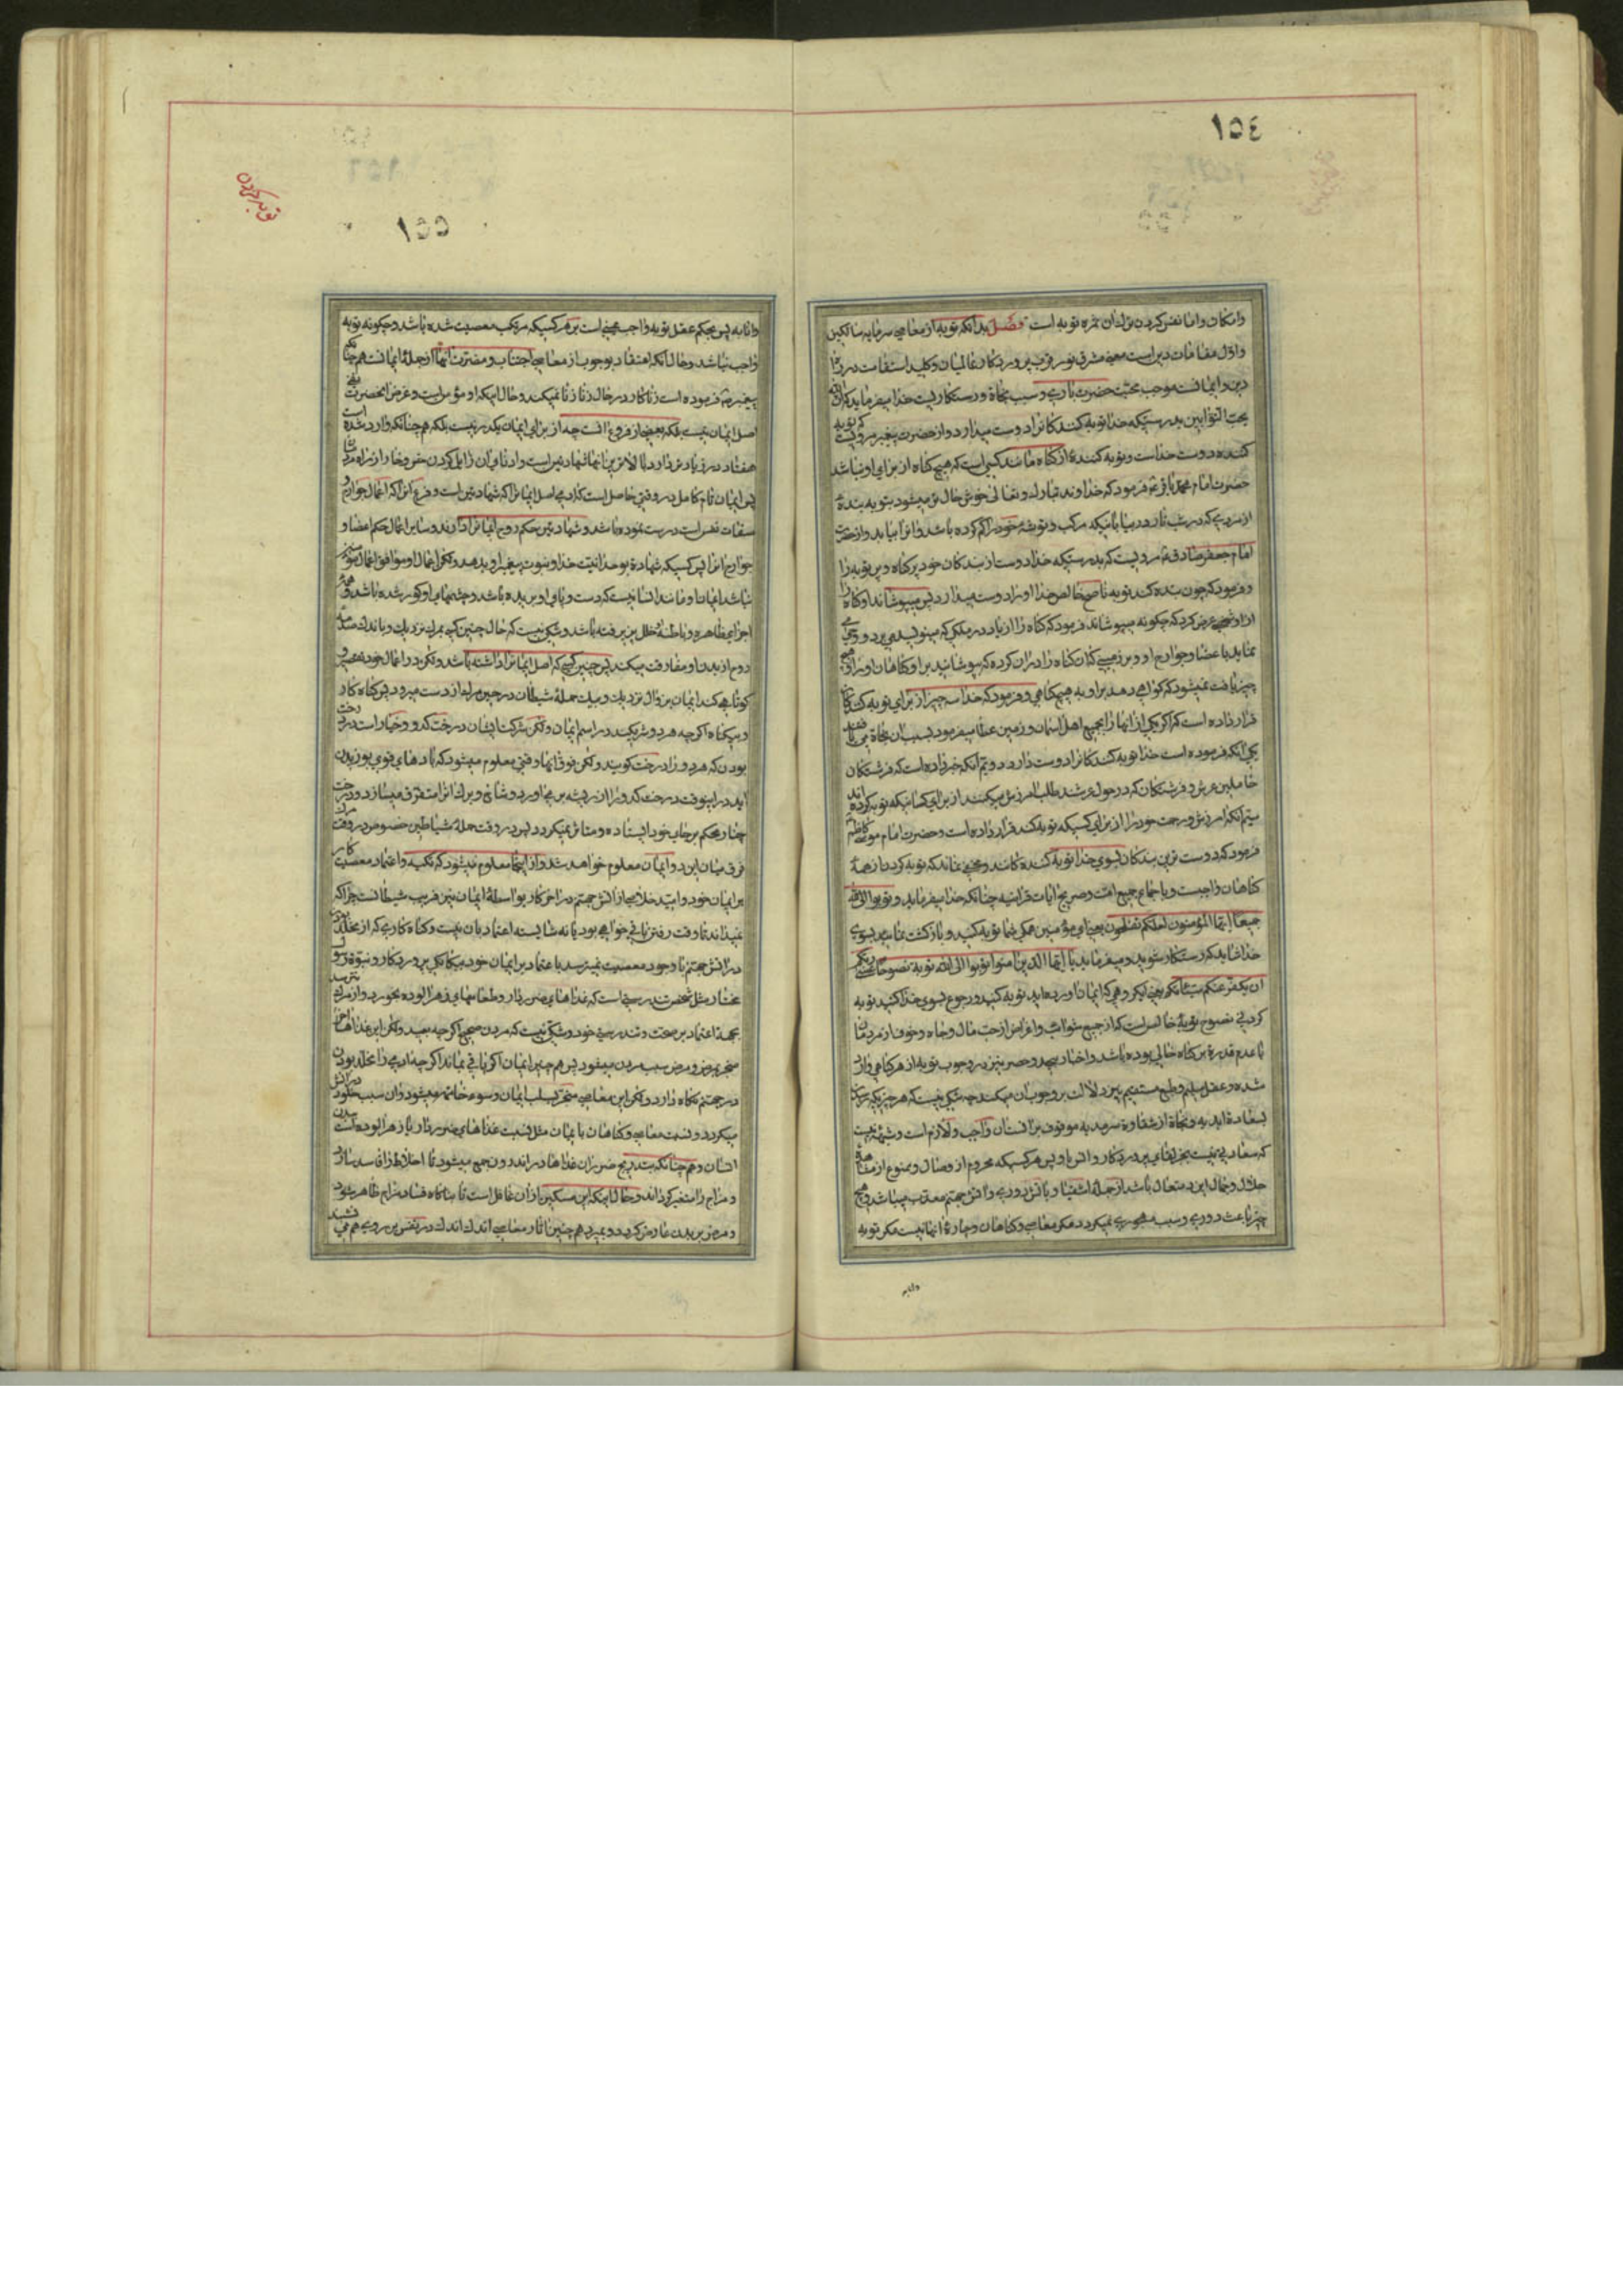 ١٥٤
وامکان واما نفس کردن ترك ان ثمره توبه است فصل بدانکه توبه از معاصی سرمایه سالکین
واول مقامات دین است مشرق نور قرب پروردکار عالمیان وکلید استقامت در راه
دین وایمانست موجب محبت حضرت باری وسبب نجاة ورستکاریست خدا میفرماید که ان الله
یحب التوابین بدرستیکه خدا توبه کنند کانرا دوست میدارد واز حضرت پیغمبر مرویست که توبه
کننده دوست خداست وتوبه کننده از کناه مانند کسی است که هیچ کناه از برای او نباشد
حضرت امام محمد باقر ع فرمود که خداوند تبارك وتعالی خوش حال تر میشود بتوبه بنده
از مردی که در شب تار در بیابانیکه مرکب وتوشه خود را کم کرده باشد وانرا بیابد واز حضرت
امام جعفر صادق ع مرویست که بدرستیکه خدا دوست از بندکان خود پر کناه وپر توبه را
وفرمود که چون بنده کند توبه ناصح خالص خدا اورا دوست میدارد پس میپوشاند او کناه را
از او شخصی عرض کرد که چکونه میپوشاند فرمود که کناه را از یاد دو ملکی که مینویسد می برد ووحی
نماید باعضا وجوارح او وبر زمینی که ان کناه را در ان کرده که بپوشانید بر او کناهان اورا وهیچ
چیز یافت نمیشود که کواهی دهد بر او به هیچ کناهی وفرمود که خدا سه چیز از برای توبه کنندکان
قرار داده است که اکر یکی از انها را بجمیع اهل اسمان وزمین عطا میفرمود بسبب ان نجاة می یافتند
یکی انکه فرموده است خدا توبه کنند کانرا دوست دارد دویم انکه خبر داده است که فرشتکان
حاملین عرش وفرشتکان که در حول عرشند طلب امرزش میکنند از برای کسانیکه توبه کرده اند
سیم انکه امرزش ورحمت خود را از برای کسیکه توبه کند قرار داده است وحضرت امام موسی کاظم ع
فرمود که دوست ترین بندکان بسوی خدا توبه کننده کانند ومخفی نماند که توبه کردن از همه
کناهان واجبست وباجماع جمیع امت وصریح ایات قرانیه چنانکه خدا میفرماید وتوبوا الی الله
جمیعا ایها المؤمنون لعلکم تفلحون یعنی ای مؤمنین همکی شما توبه کنید وبازکشت نمائید بسوی
خدا شاید که رستکار شوید ومیفرماید یا ایها الذین امنوا توبوا الی الله توبة نصوحا عسی ربکم
ان یکفر عنکم سیئاتکم یعنی ایکروهی که ایمان اورده اید توبه کنید ورجوع بسوی خدا کنید توبه
کردنی نصوح توبه خالص است که از جمیع شوائب واغراض از حب مال وجاه وخوف از مردمان
یا عدم قدرة بر کناه خالی بوده باشد واخبار بیحد وحصر نیز در وجوب توبه از هر کناهی وارد
شده وعقل سلیم وطبع مستقیم نیز دلالت بر وجوب ان میکند چه شکی نیست که هر چیزیکه رسیدن
بسعادة ابدیه ونجاة از شقاوة سرمدیه موقوف بر انست ان واجب ولازم است وشبهه نیست
که سعادتی نیست بجز لقای پروردکار وانس با او پس هر کسیکه محروم از وصال وممنوع از مشاهده
جلال وجمال ایزد متعال باشد از جمله اشقیا وباتش دوری واتش جهنم معذب میباشد وهیچ
چیز باعث دوری وسبب مهجوری نمیکردد مکر معاصی وکناهان وچاره انها نیست مکر توبه
وانابه
١٥٥
توبه کردن
وانابه پس بحکم عقل توبه واجب عینی است بر هر کسیکه مرتکب معصیت شده باشد وچکونه توبه
واجب نباشد وحال انکه اعتقاد بوجوب از معاصی اجتناب ومضرت انها از جمله ایمانست همچنانکه
پیغمبر ص فرموده است زناکار در حال زنا زنا نمیکند وحال اینکه او مؤمن است وغرض انحضرت نفی
اصل ایمان نیست بلکه بعضی از فروع انست چه از برای ایمان یکدر نیست بلکه همچنانکه وارد شده است
هفتاد در زیادتر دارد بالاترین انها شهادتین است وادنای ان زایل کردن خس وخار از راه مردمان
پس ایمان تام کامل در وقتی حاصل است که ادمی اصل ایمانرا که شهادتین است وفرع انرا که اعمال جوارح و
صفات نفس است درست نموده باشد وشهادتین حکم روح ایمانرا دارند وسایر اعمال حکم اعضا و
جوارح انرا پس کسیکه شهادة بوحدانیت خدا ونبوت پیغمبر او بدهد ولکن اعمال او موافق اعمال مؤمنین
نباشد ایمان او مانند انسانیست که دست وپای او بریده باشد وچشمهای او کور شده باشد وهمه
اجزای ظاهره وباطنه خلل پذیرفته باشد وشکی نیست که حال چنین کسی بمرك نزدیك وباندك صدمه
روح از بدن او مفارقت میکند پس چنین کسی که اصل ایمانرا داشته باشد ولکن در اعمال خود مقصر و
کوتاهی کند ایمان بزوال نزدیك وبیك حمله شیطان در حین مرك از دست میرود پس کناه کار
وبیکناه اکرچه هر دو شریکند در اسم ایمان ولکن شرکت ایشان درخت کدو وخیار است در درخت
بودن که هر دو را درخت کویند ولکن فرق انها وقتی معلوم میشود که بادهای قوی بوزیدن
اید در اینوقت درخت کدو را از ریشه بر می اورد وشاخ وبرك انرا متفرق میسازد ودرخت
چنار محکم بر جای خود ایستاده ومتاثر نمیکردد پس در وقت حمله شیاطین خصوص در وقت مرك
فرق میان این دو ایمان معلوم خواهد شد واز اینجا معلوم میشود که تکیه واعتماد معصیت کار
بر ایمان خود وامید خلاصی از اتش جهنم در اخر کار بواسطه ایمان نیز فریب شیطانست چرا که
نمیداند تا وقت رفتن باقی خواهد بود یا نه شایسته اعتماد بان نیست وکناه کاری که از مخلد بودن
در اتش جهنم با وجود معصیت نمیترسد باعتماد بر ایمان خود بیکانکی پروردکار ونبوة رسول
مختار مثل شخص تندرستی است که غذاهای ضرردار وطعامهای زهرالوده بخورد واز مرك نترسد
بجهة اعتماد بر صحت وتندرستی خود وشکی نیست که مردن صحیح اکرچه بعید ولکن این غذاها اخر
منجر بمرض ومرض سبب مردن میشود پس هم چنین ایمان اکر باقی بماند اکرچه ادمی را از مخلد بودن
در جهنم نکاه دارد ولکن این معاصی منجر بسلب ایمان وسوء خاتمه میشود وان سبب خلود در اتش
میکردد ونسبت معاصی وکناهان با ایمان مثل نسبت غذاهای ضرردار یا زهرالوده است ببدن
انسان وهم چنانکه بتدریج ضرر ان غذاها در اندرون جمع میشود تا اخلاط را فاسد سازد
ومزاج را متغیر کرداند وحال اینکه این مسکین از ان غافل است تا بناکاه فساد مزاج ظاهر شود
ومرض بر بدن عارض کردد وبمیرد هم چنین اثار معاصی اندك اندك در نفس بر روی هم می نشیند